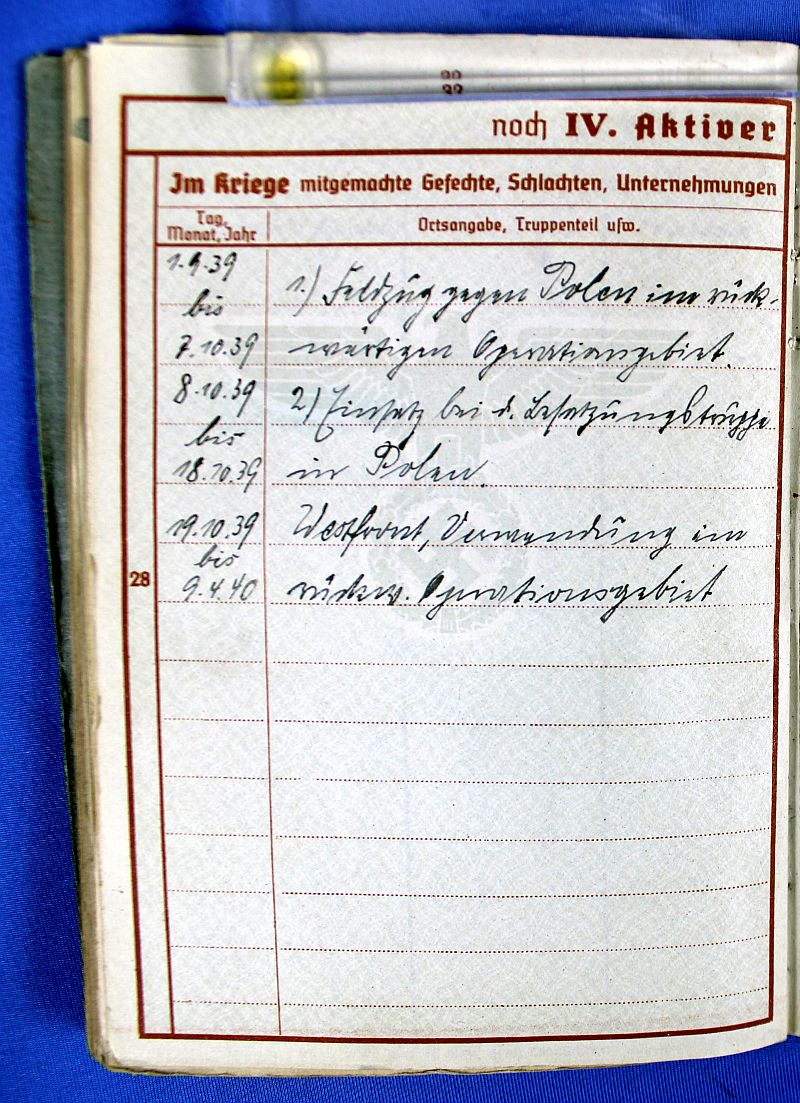 32
noch IV. Aktiver
Im Kriege mitgemachte Gefechte, Schlachten, Unternehmungen
Tag, Monat, Jahr
Ortsangabe, Truppenteil usw.
1.9.39
bis
1.) Feldzug gegen Polen im rück-
7.10.39 wärtigen Operationsgebiet.
8.10.39 2.) Einsatz bei d. Besatzungstruppe
bis
18.10.39 in Polen.
19.10.39 Westfront, Verwendung im
bis
28
9.4.40 rückw. Operationsgebiet